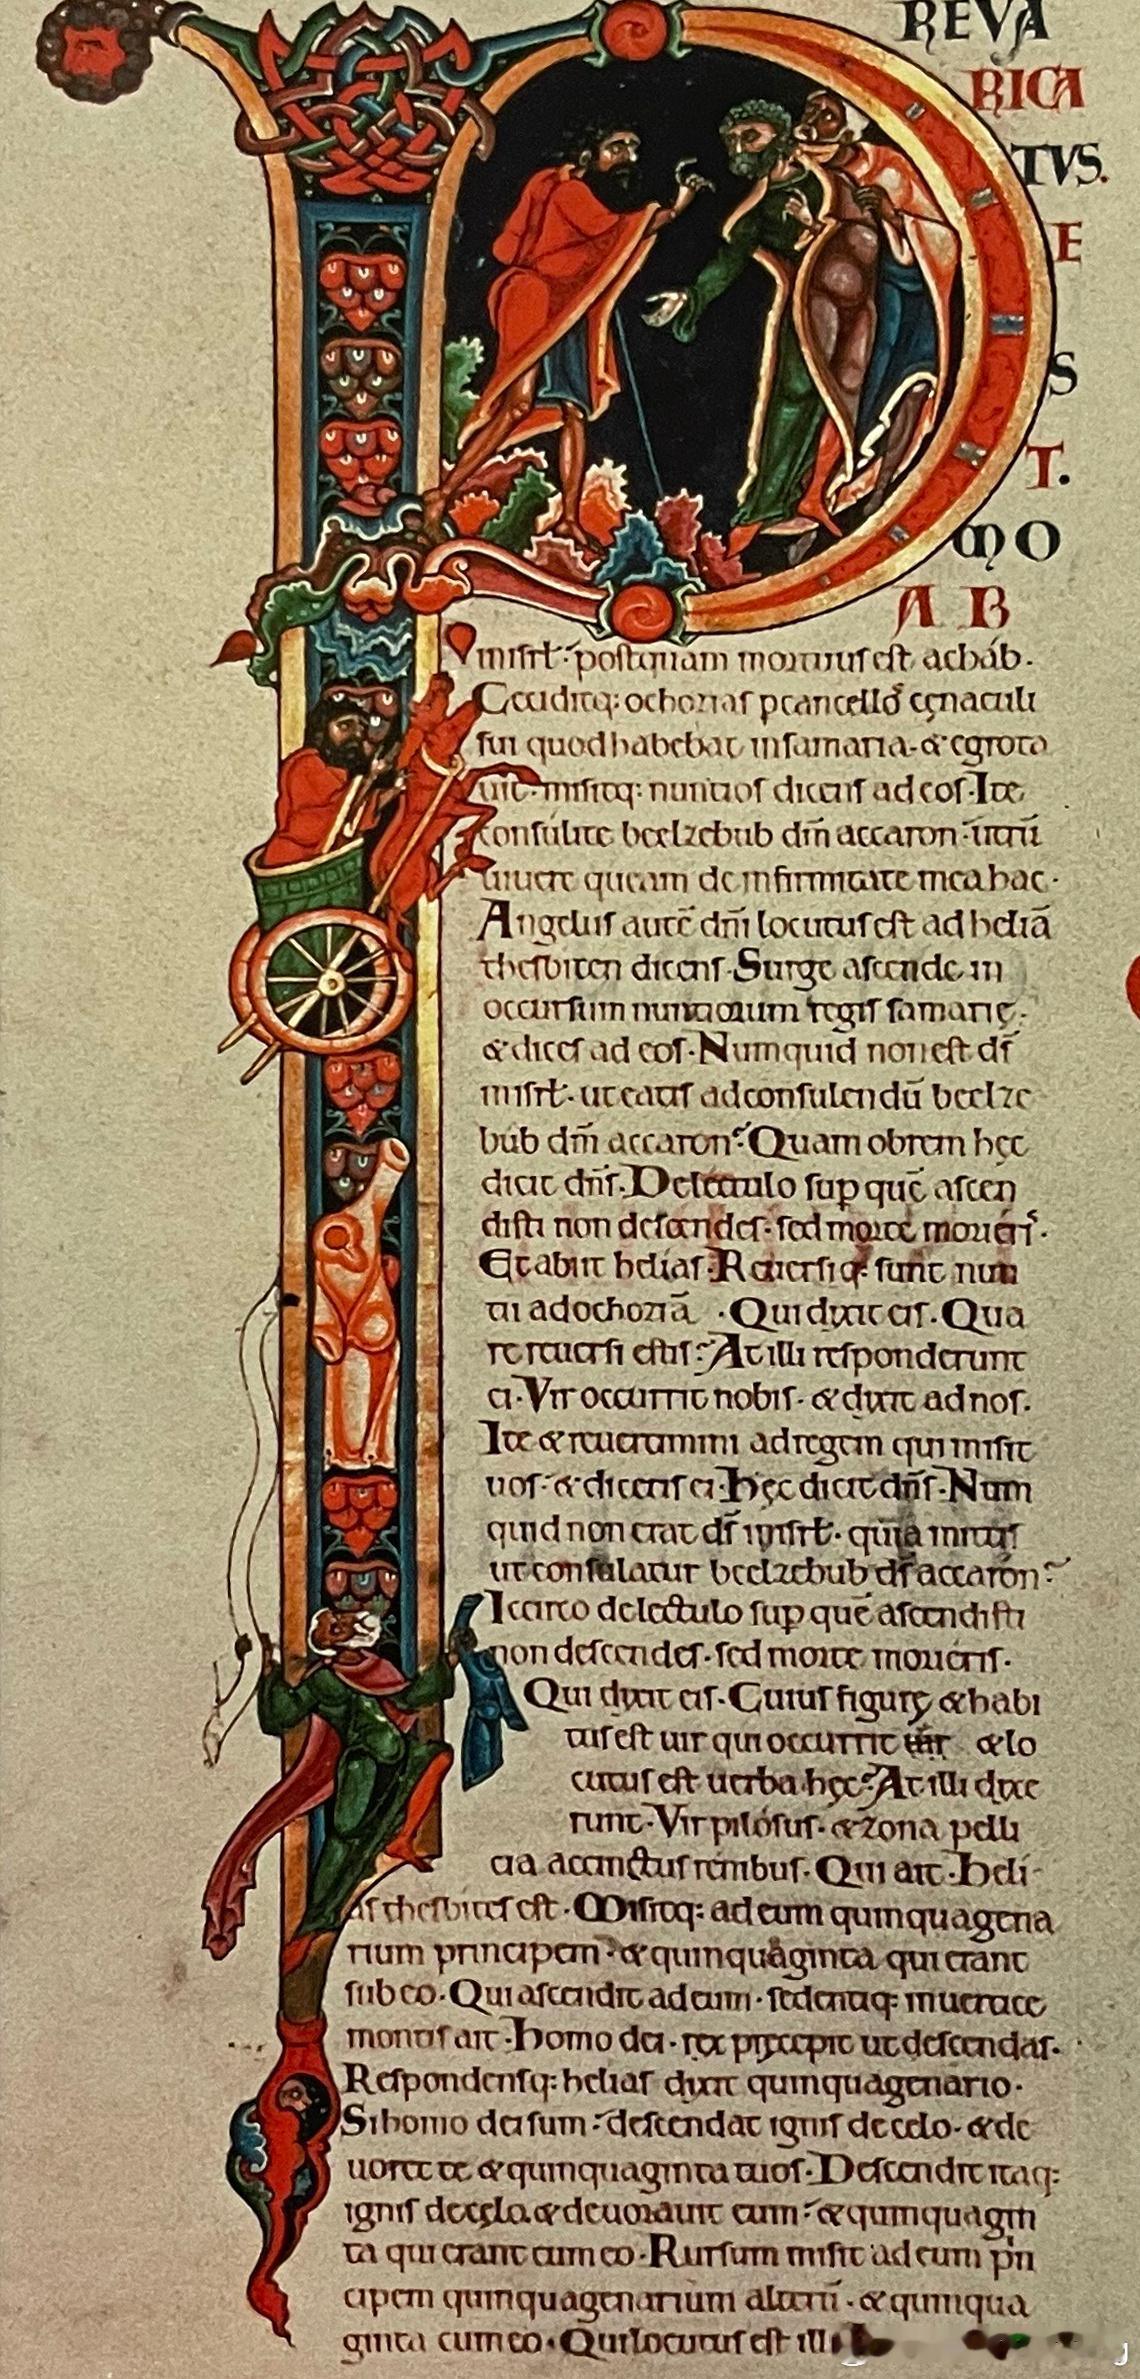 REVA
RICA
TVS.
E
S
T.
MO
AB
in isrł· postquam mortuus est achab·
Ceciditq: ochozias p cancellos cęnaculi
sui quod habebat in samaria· & egrota
uit· misitq: nuntios dicens ad eos· Ite
consulite beelzebub dm̄ accaron· utrū
uiuere queam de infirmitate mea hac·
Angelus autē dn̄i locutus est ad heliā
thesbiten dicens· Surge ascende in
occursum nuntiorum regis samarię·
& dices ad eos· Numquid non est ds̄
in isrł· ut eatis ad consulendū beelze
bub dm̄ accaron? Quam obrem hęc
dicit dn̄s· De lectulo sup quē ascen
disti non descendes· sed morte morieris·
Et abiit helias· Reuersiq: sunt nun
tii ad ochoziā · Qui dixit eis· Qua
re reuersi estis? At illi responderunt
ei· Vir occurrit nobis· & dixit ad nos·
Ite & reuertimini ad regem qui misit
uos· & dicetis ei· Hęc dicit dn̄s· Num
quid non erat ds̄ in isrł· quia mittis
ut consulatur beelzebub ds̄ accaron?
Iccirco de lectulo sup quē ascendisti
non descendes· sed morte morieris·
Qui dixit eis· Cuius figurę & habi
tus est uir qui occurrit & lo
cutus est uerba hęc? At illi dixe
runt· Vir pilosus· & zona pelli
cia accinctus renibus· Qui ait· Heli
as thesbites est· Misitq: ad eum quinquagena
rium principem· & quinquaginta qui erant
sub eo· Qui ascendit ad eum· sedentiq: in uertice
montis ait· Homo dei· rex pręcepit ut descendas·
Respondensq: helias dixit quinquagenario·
Si homo dei sum· descendat ignis de celo· & de
uoret te & quinquaginta tuos· Descendit itaq:
ignis de cęlo & deuorauit eum· & quinquagin
ta qui erant cum eo· Rursum misit ad eum prin
cipem quinquagenarium alterū· & quinqua
ginta cum eo· Qui locutus est illi